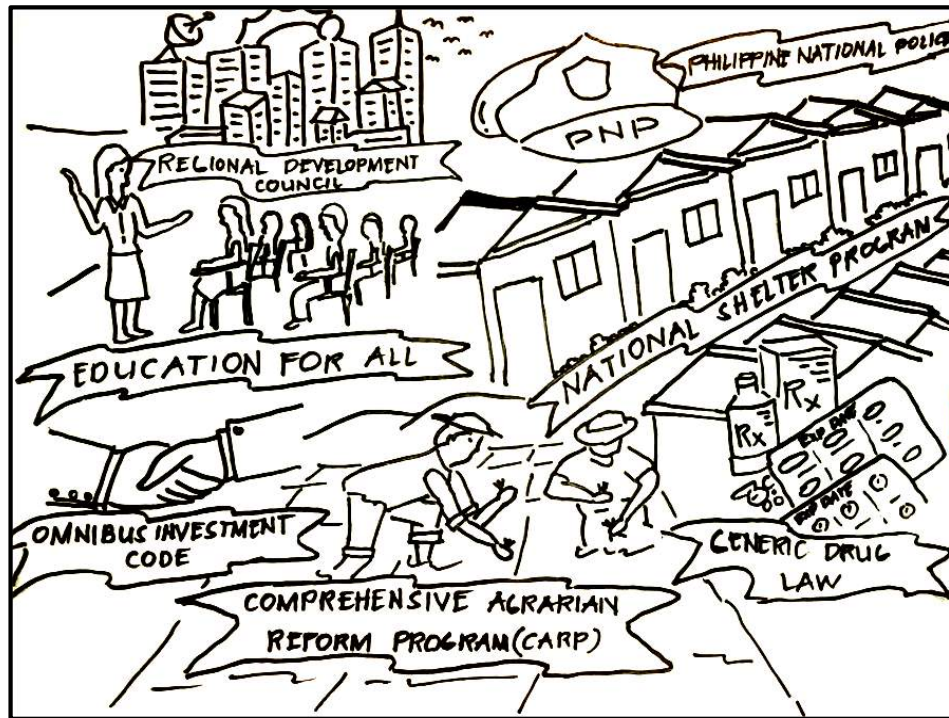 PHILIPPINE NATIONAL POLICE
PNP
REGIONAL DEVELOPMENT
COUNCIL
EDUCATION FOR ALL
NATIONAL SHELTER PROGRAM
Rx
Rx
EXP DATE
EXP DATE
OMNIBUS INVESTMENT
CODE
GENERIC DRUG
LAW
COMPREHENSIVE AGRARIAN
REFORM PROGRAM (CARP)